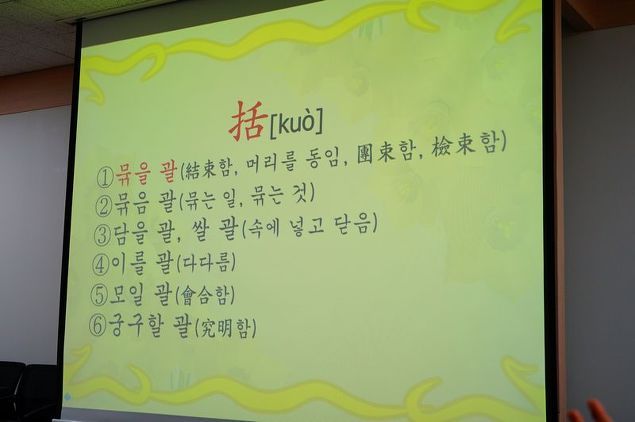 括[kuò]
①묶을 괄(結束함, 머리를 동임, 團束함, 檢束함)
②묶음 괄(묶는 일, 묶는 것)
③담을 괄, 쌀 괄(속에 넣고 닫음)
④이를 괄(다다름)
⑤모일 괄(會合함)
⑥궁구할 괄(究明함)